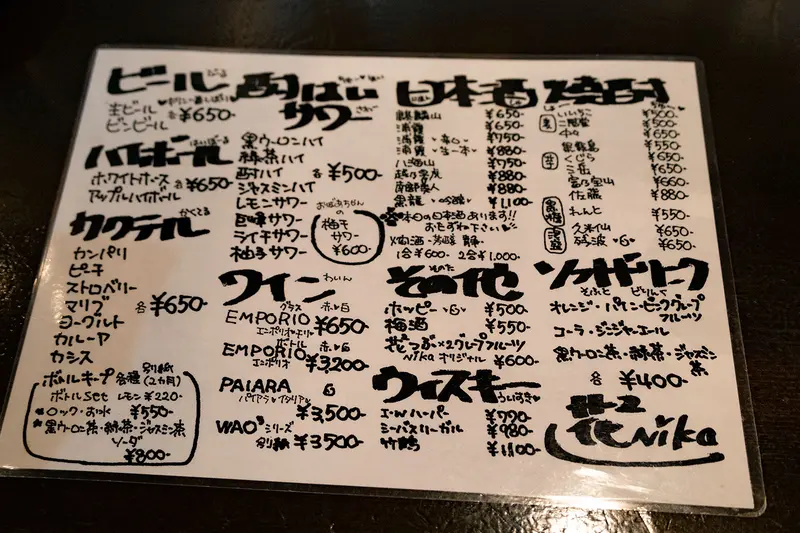 ビール
びーる
生ビール
ビンビール
各¥650-
ハイボール
はいぼーる
ホワイトホース
アップルハイボール
各¥650-
カクテル
かくてる
カンパリ
ピーチ
ストロベリー
マリブ
ヨーグルト
カルーア
カシス
各¥650-
ボトルキープ 各種 別紙(2カ月)
ボトルSet レモン¥220-
ロック・お水 ¥550-
黒ウーロン茶・緑茶・ジャスミン茶
ソーダ
¥800-
酎はい
ちゅーはい
サワー
さわー
黒ウーロンハイ
緑茶ハイ
酎ハイ
ジャスミンハイ
レモンサワー
巨峰サワー
ライチサワー
柚子サワー
各¥500-
おばあちゃんの
梅干
サワー
¥600-
ワイン
わいん
グラス 赤・白
EMPORIO ¥650-
エンポリオ
ボトル 赤・白
EMPORIO ¥3,200-
エンポリオ
PAIARA
パイアラ イタリア
¥3,500-
WAO'sシリーズ
別紙 ¥3500-
日本酒
麒麟山 ¥650-
浦霞 ¥650-
浦霞・辛口 ¥750-
浦霞・生一本 ¥880-
八海山 ¥750-
¥880-
南部美人 ¥880-
黒龍・吟醸 ¥1,100-
本日の日本酒あります!!
おたずね下さい
1合¥600- 2合¥1,000-
その他
そのた
ホッピー ¥500-
梅酒 ¥550-
花つぶ×2グレープフルーツ
Nikaオリジナル ¥600-
ウィスキー
ういすきー
I.Wハーパー ¥770-
シーバスリーガル ¥980-
竹鶴 ¥1100-
焼酎
麦 いいちこ ¥500-
二階堂 ¥650-
中々 ¥650-
芋 黒霧島 ¥550-
くじら ¥650-
三岳 ¥650-
富乃宝山 ¥660-
佐藤 ¥880-
黒糖 れんと ¥550-
泡盛 久米仙 ¥650-
残波 ¥650-
ソフトドリンク
そふと どりんく
オレンジ・パイン・ピンクグレープ
フルーツ
コーラ・ジンジャーエール
黒ウーロン茶・緑茶・ジャスミン
茶
各 ¥400-
花Nika